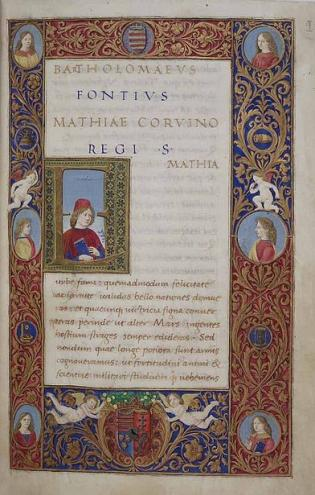 BARTHOLOMAEVS
FONTIVS
MATHIAE CORVINO
REGI S
MATHIA
fama: quemadmodum felicitate
ualidas bello nationes domue
ras: et quocunq uictricia signa conuer
teras perinde ut alter Mars ingentes
hostium strages semper edideras. Sed
nondum quae longe potiora sunt armis
cognoueramus: ut fortitudini animi et
scientiae militari studium q uehemens